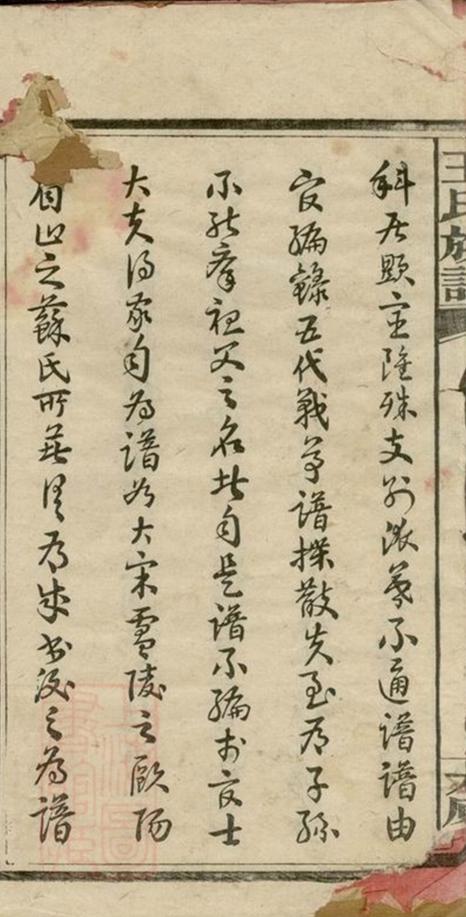 王氏族譜
科居顯宦隆殊支別派不通譜譜由
官編錄五代戰爭譜牒散失至有子孫
不能舉祖父之名自是譜不編於官士
大夫得家自為譜若大宋廬陵之歐陽
眉山之蘇氏所著為成書後之為譜